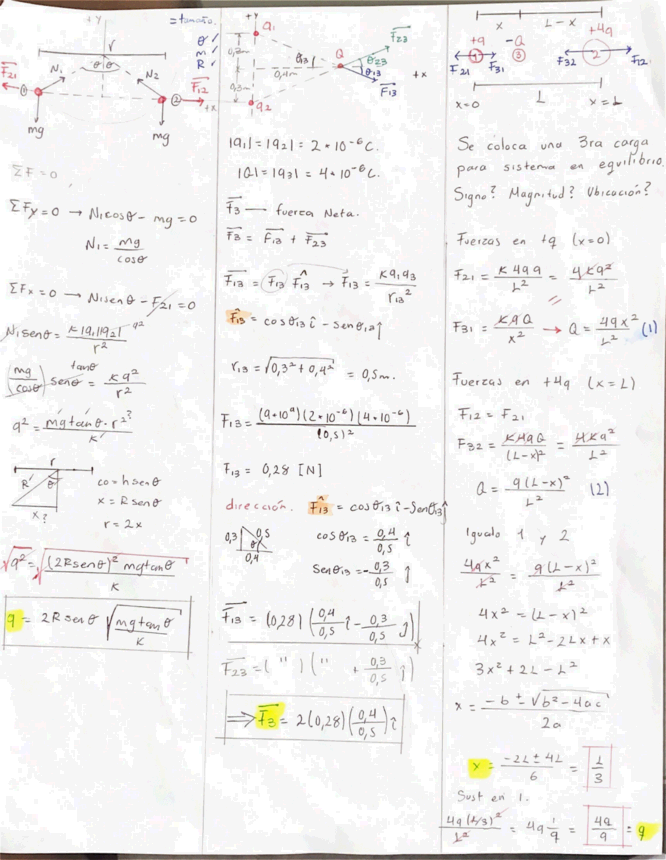 +y
r
=tamaño.
θ ✓
m ✓
R ✓
F21
N1
θ θ
N2
F12
1
2
+x
mg
mg
ΣF = 0
ΣFy=0 → N1cosθ - mg = 0
N1 = mg/cosθ
ΣFx=0 → N1senθ - F21 = 0
N1senθ = K|q1||q2|/r² q²
(mg/cosθ) senθ = Kq²/r² tanθ
q² = mgtanθ · r²?/K
r
R
θ
x?
co = hsenθ
x = Rsenθ
r = 2x
√q² = √(2Rsenθ)² mgtanθ/K
q = 2Rsenθ √mgtanθ/K
+y
q1
0,3m
0,3m
θ13
0,4m
Q
F23
θ23
θ13
F13
+x
q2
|q1|=|q2|= 2*10⁻⁶C.
|Q|=|q3|= 4*10⁻⁶C.
F3 — fuerza Neta.
F3 = F13 + F23
F13 = F13 F̂13 → F13 = Kq1q3/r13²
F̂13 = cosθ13 î - senθ13 ĵ
r13 = √0,3²+0,4² = 0,5m.
F13 = (9*10⁹)(2*10⁻⁶)(4*10⁻⁶)/(0,5)²
F13 = 0,28 [N]
dirección. F̂13 = cosθ13 î - Senθ13 ĵ
0,3
0,5
θ
0,4
cosθ13 = 0,4/0,5 î
Senθ13 = -0,3/0,5 ĵ
F13 = (0,28)(0,4/0,5 î - 0,3/0,5 ĵ)
F23 = ( " ) ( " + 0,3/0,5 ĵ)
⇒ F3 = 2(0,28)(0,4/0,5) î
x
L-x
+q
-Q
+4q
1
3
2
F21
F31
F32
F12
x=0
L
x=L
Se coloca una 3ra carga
para sistema en equilibrio.
Signo? Magnitud? Ubicación?
Fuerzas en +q (x=0)
F21 = K4qq/L² = 4Kq²/L²
F31 = KqQ/x² → Q = 4qx²/L² (1)
Fuerzas en +4q (x=L)
F12 = F21
F32 = K4qQ/(L-x)² = 4Kq²/L²
Q = q(L-x)²/L² (2)
Igualo 1 y 2
4qx²/L² = q(L-x)²/L²
4x² = (L-x)²
4x² = L²-2Lx+x
3x²+2L-L²
x = -b ± √b²-4ac/2a
x = -2L±4L/6 = L/3
Sust en 1.
4q(L/3)²/L² = 4q 1/9 = 4q/9 = q